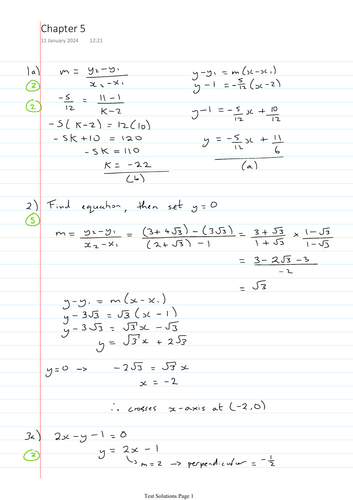 Chapter 5
11 January 2024 12:21
1a) m = (y₂-y₁)/(x₂-x₁) y-y₁ = m(x-x₁)
② y-1 = -5/12(x-2)
② -5/12 = (11-1)/(k-2) y-1 = -5/12 x + 10/12
-5(k-2) = 12(10)
-5k+10 = 120 y = -5/12 x + 11/6
-5k = 110
k = -22 (a)
(b)
2) Find equation, then set y=0
⑤ m = (y₂-y₁)/(x₂-x₁) = ((3+4√3)-(3√3))/((2+√3)-1) = (3+√3)/(1+√3) × (1-√3)/(1-√3)
= (3-2√3-3)/-2
= √3
y-y₁ = m(x-x₁)
y-3√3 = √3(x-1)
y-3√3 = √3x - √3
y = √3x + 2√3
y=0 -> -2√3 = √3x
x = -2
∴ crosses x-axis at (-2,0)
3a) 2x-y-1=0
② y = 2x-1
↳ m=2 -> perpendicular = -1/2
Test Solutions Page 1